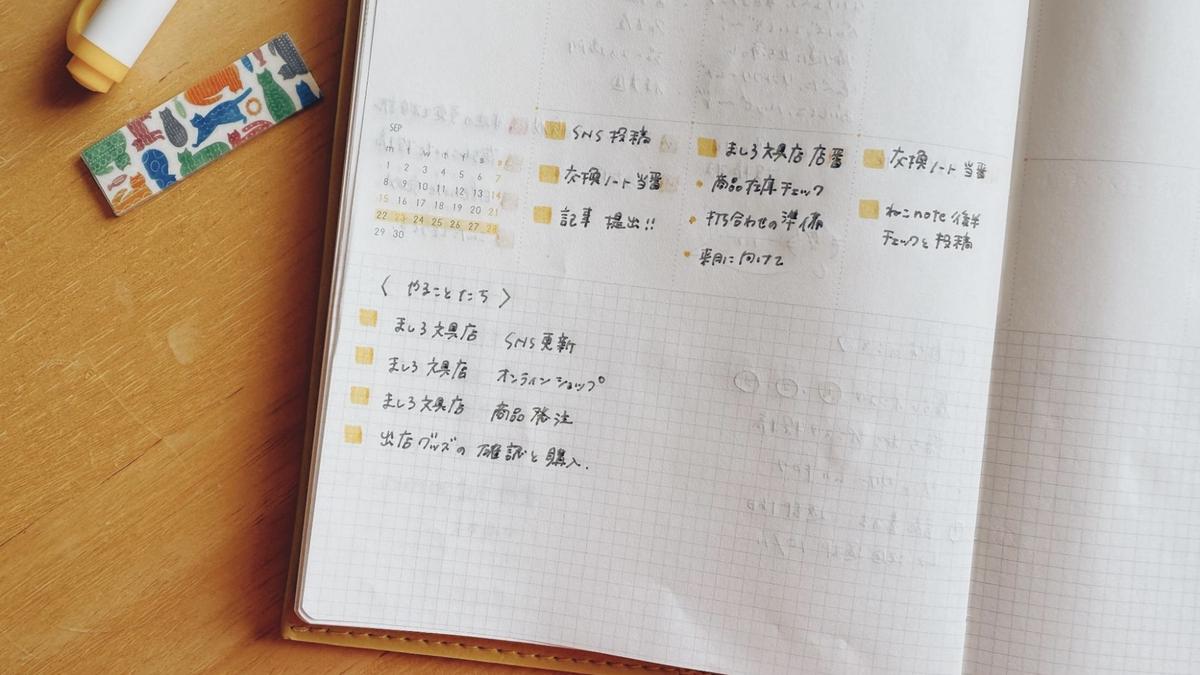 SEP
m t w t f s s
1 2 3 4 5 6 7
8 9 10 11 12 13 14
15 16 17 18 19 20 21
22 23 24 25 26 27 28
29 30
SNS 投稿
交換ノート 当番
記事 提出!!
ましろ文具店 店番
商品在庫チェック
打ち合わせの準備
来月に向けて
交換ノート 当番
ねこnote 後半
チェックと投稿
〈 やることたち 〉
ましろ文具店 SNS更新
ましろ文具店 オンラインショップ
ましろ文具店 商品発注
出店グッズの確認と購入.